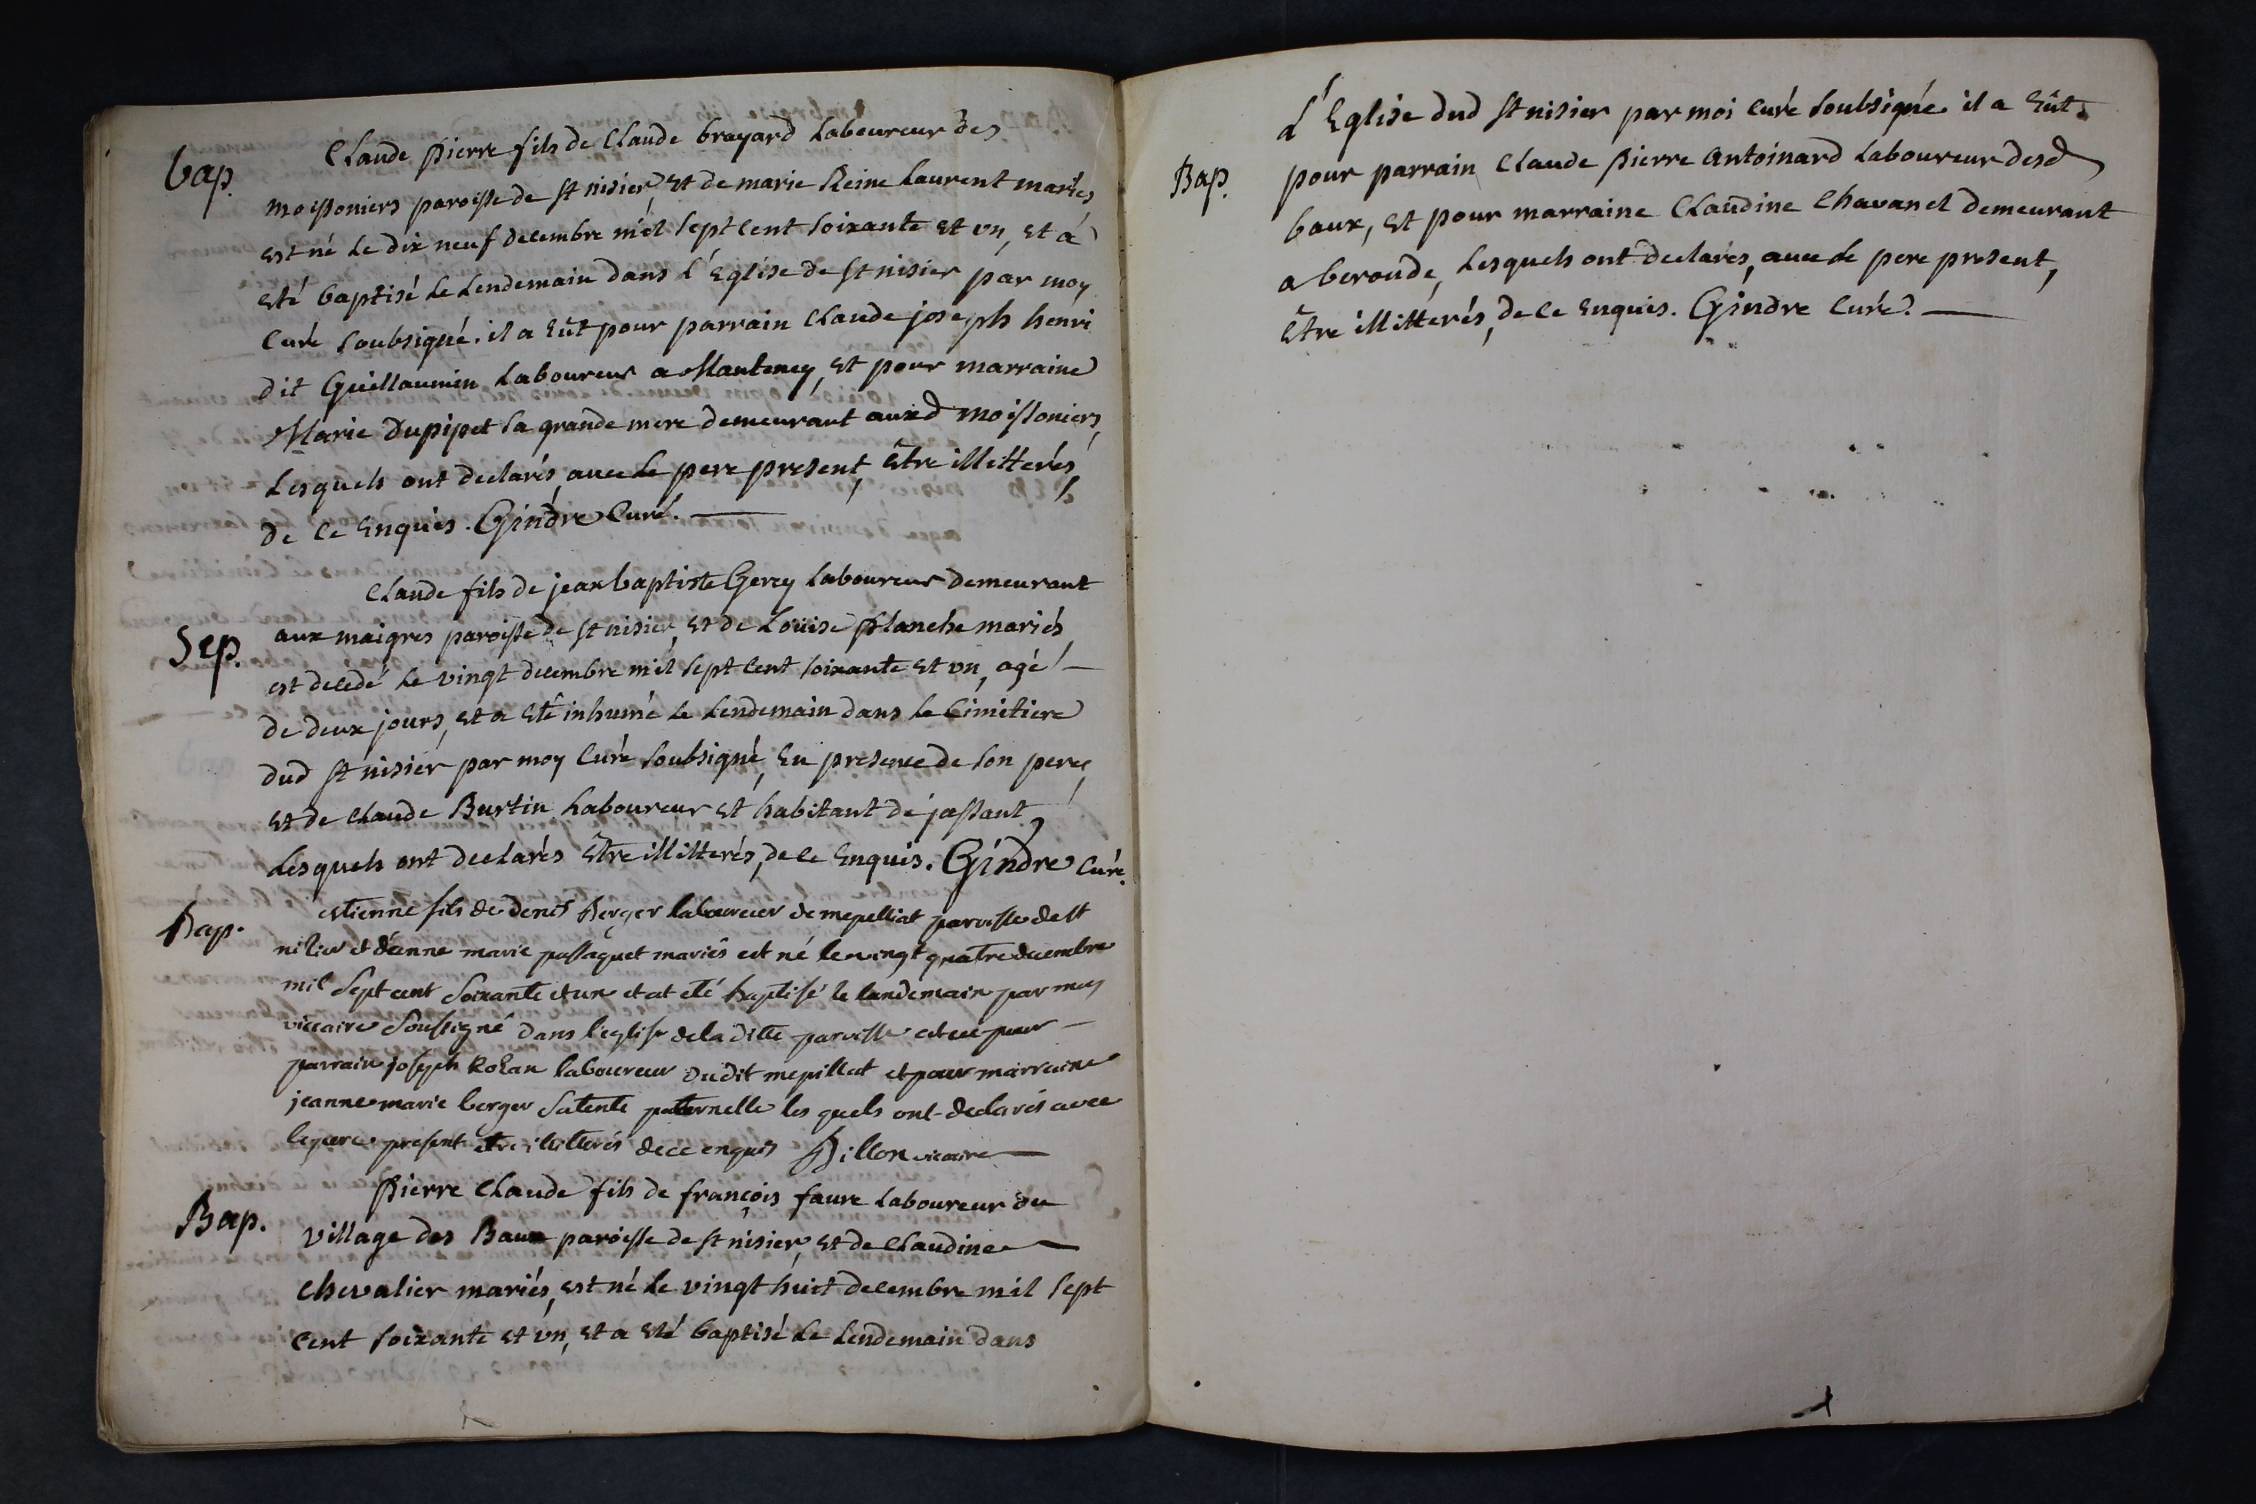 bap.
Claude pierre fils de Claude brayard Laboureur des
moissoniers paroisse de st nisier, et de marie Reine Laurent mariés
est né le dix neuf decembre mil sept cent soixante et un, et a
eté baptisé le lendemain dans l'Eglise de st nisier par moy
Curé soubsigné. il a Eût pour parrain Claude joseph henri
dit Guillaumin Laboureur a Manteney, et pour marraine
Marie Dupipet sa grande mere demeurant auxd moissoniers,
Lesquels ont declarés, avec le pere present, être illitterés,
de ce Enquis. Gindre Curé.
Sep.
Claude fils de jean baptiste Gerey Laboureur demeurant
aux maigres paroisse de st nisier, et de Louise planche mariés
est decedé le vingt decembre mil sept cent soixante et un, agé
de deux jours, et a eté inhumé le lendemain dans le Cimitiere
dud st nisier par moy Curé soubsigné, En presence de son pere,
et de Claude Burtin Laboureur et habitant de jassant
Lesquels ont declarés être illitterés, de ce Enquis. Gindre Curé.
Bap.
estienne fils de denis Berger laboureur de mepelliat paroisse de st
nisier et d'anne marie passaquet mariés est né le vingt quatre decembre
mil sept cent soixante et un et at eté baptisé le landemain par moy
viccaire soussigné dans l'eglise de la ditte paroisse et eü pour
parrain joseph Rozan laboureur dudit mepillat et pour marraine
jeanne marie berger sa tente paternelle les quels ont declarés avec
le pere present etre illitterés de ce enquis Billon vicaire
Bap.
Pierre Claude fils de françois faure Laboureur du
village des Baux paroisse de st nisier, et de Claudine
Chevalier mariés, est né le vingt huit decembre mil sept
cent soixante et un, et a eté baptisé le lendemain dans
Bap.
L'Eglise dud st nisier par moi Curé soubsigné. il a Eût
pour parrain Claude pierre Antoinard Laboureur desd
baux, et pour marraine Claudine Chavanel demeurant
a beroude, Lesquels ont declarés, avec le pere present,
être illitterés, de ce Enquis. Gindre Curé.